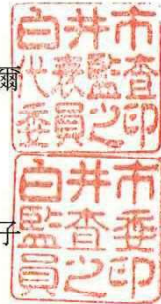 爾
白井市
代表監査
委員之印
子
白井市
監査委
員之印